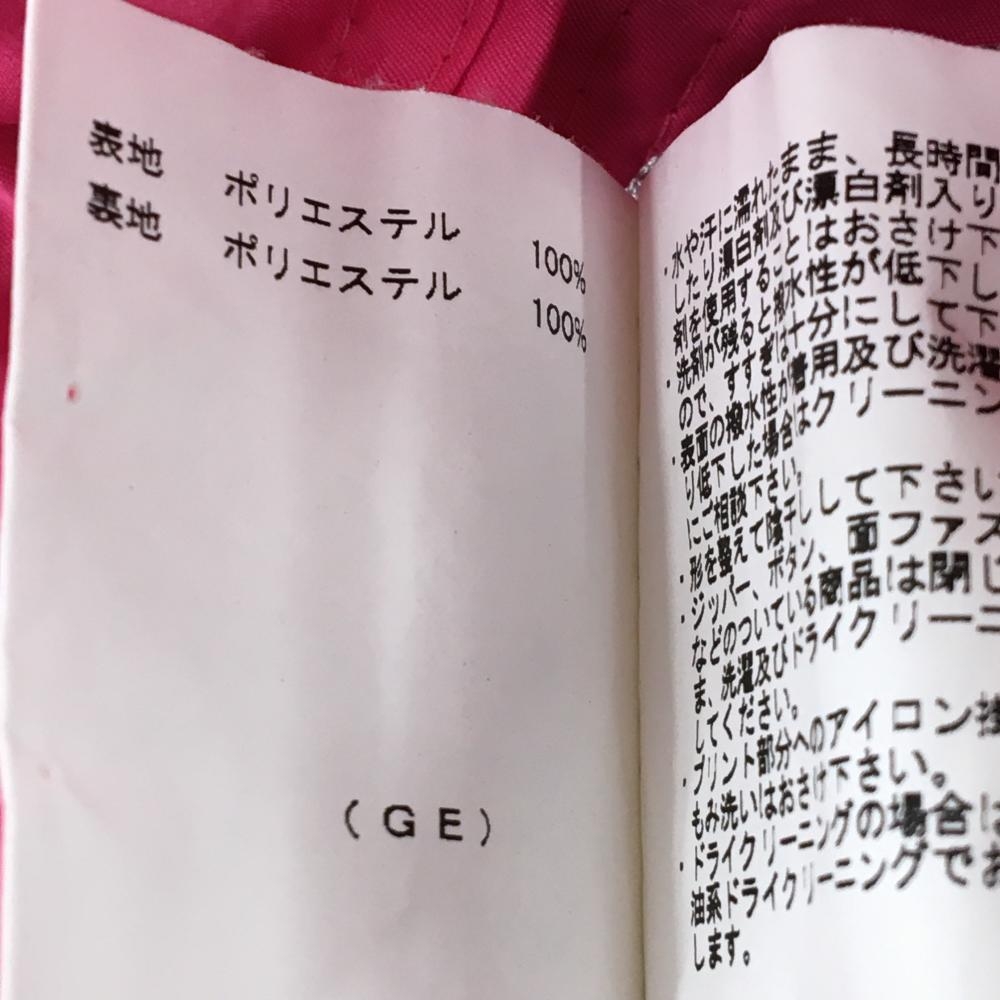 表地 ポリエステル 100%
裏地 ポリエステル 100%
(GE)
・水や汗に濡れたまま、長時間
したり漂白剤及び漂白剤入り
剤を使用することはおさけ下
・洗剤が残ると撥水性が低下し
ので、すすぎは十分にして下
・表面の撥水性が着用及び洗濯
り低下した場合はクリーニン
にご相談下さい。
・形を整えて陰干しして下さい
・ジッパー、ボタン、面ファス
などのついている商品は閉じ
ま、洗濯及びドライクリーニ
してください。
・プリント部分へのアイロン掛
もみ洗いはおさけ下さい。
・ドライクリーニングの場合は
油系ドライクリーニングでお
します。